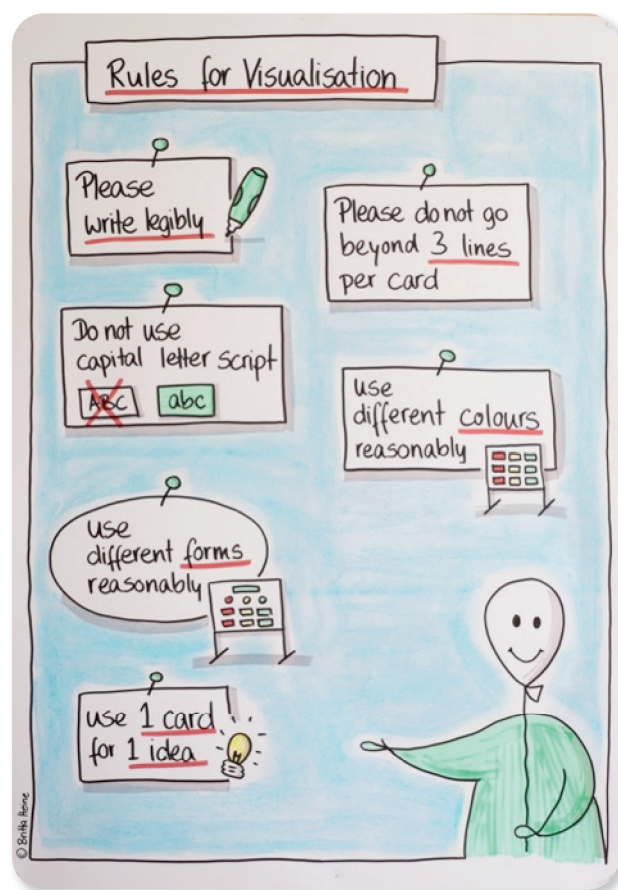 Rules for Visualisation
Please
write legibly
Please do not go
beyond 3 lines
per card
Do not use
capital letter script
ABC
abc
use
different colours
reasonably
use
different forms
reasonably
use 1 card
for 1 idea